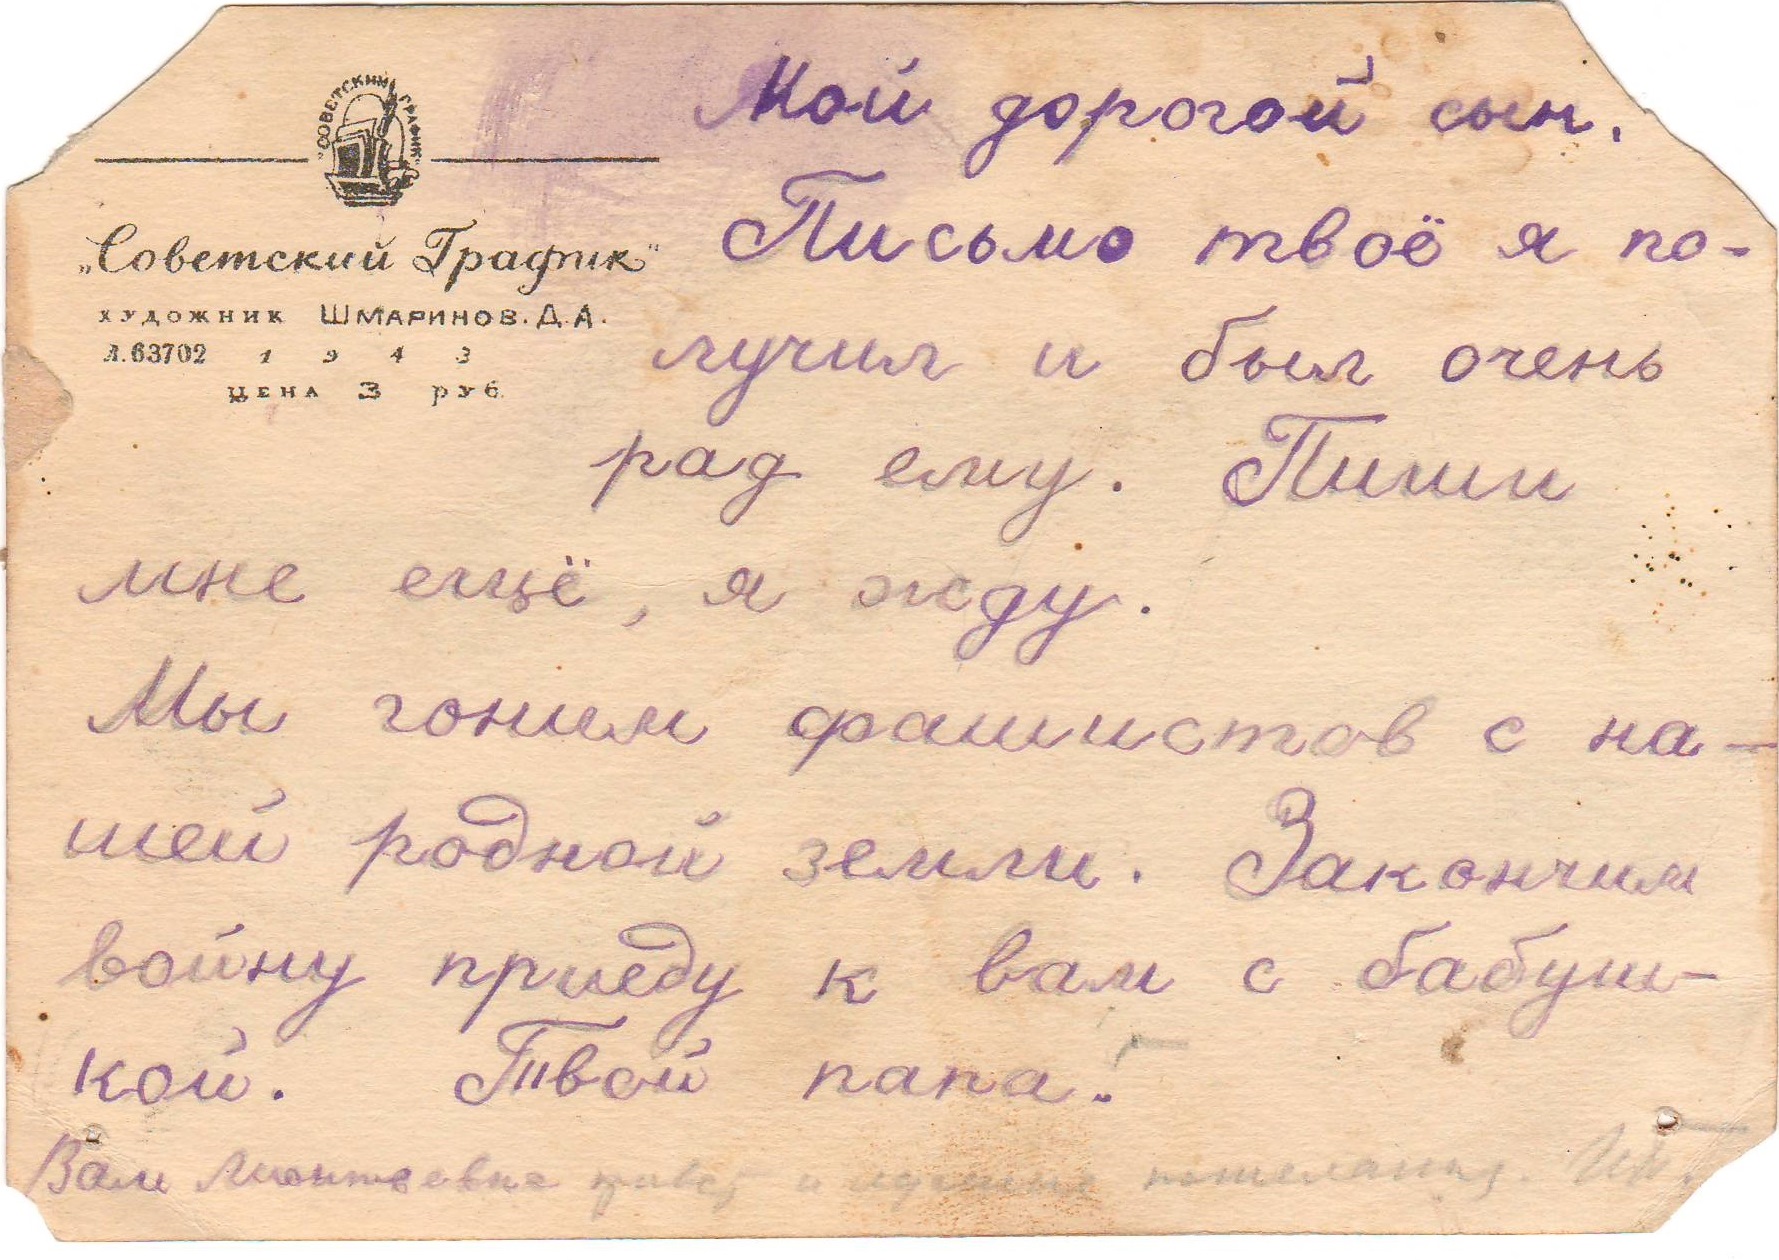 "СОВЕТСКИЙ ГРАФИК"
„Советский График"
ХУДОЖНИК ШМАРИНОВ. Д. А.
Л.63702 1943
ЦЕНА 3 руб
Мой дорогой сын.
Письмо твоё я по-
лучил и был очень
рад ему. Пиши
мне ещё, я жду.
Мы гоним фашистов с на-
шей родной земли. Закончим
войну приеду к вам с бабуш-
кой. Твой папа.
Вам Леонтьевне привет и лучшие пожелания.